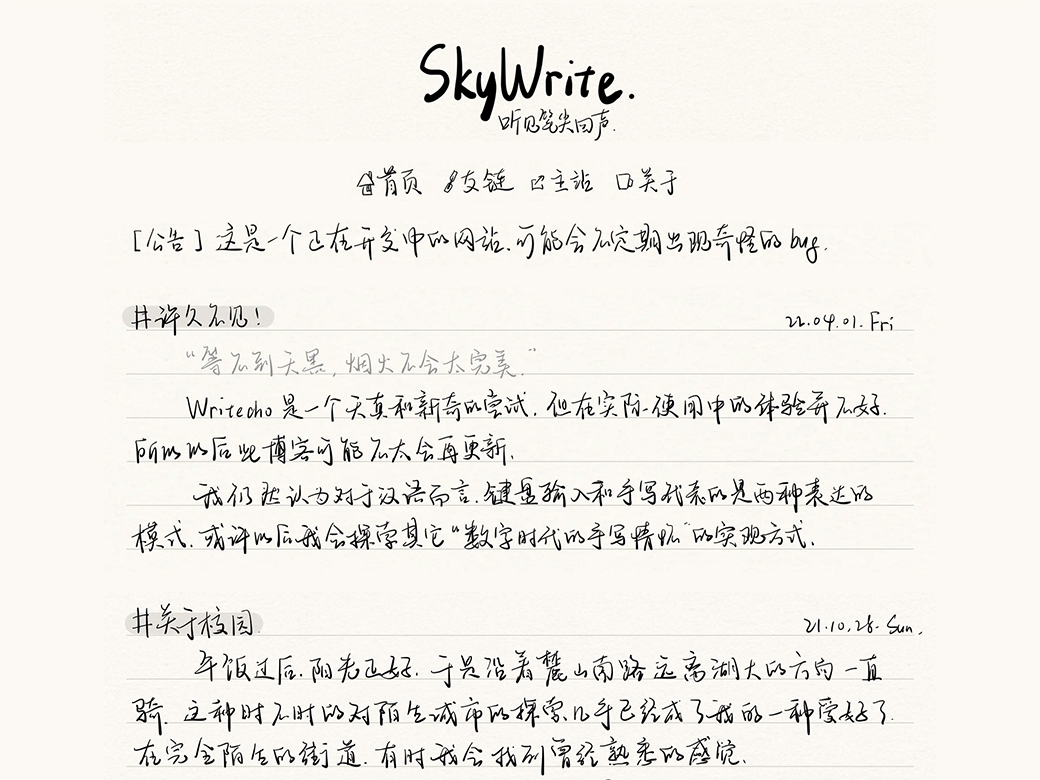 SkyWrite.
听见笔尖回声.
首页 友链 主站 关于
[公告] 这是一个正在开发中的网站,可能会不定期出现奇怪的bug.
#许久不见!
22.04.01. Fri
“等不到天黑, 烟火不会太完美.”
Writecho 是一个天真和新奇的尝试, 但在实际使用中的体验并不好.
所以以后此博客可能不太会再更新.
我仍然认为对于汉语而言, 键盘输入和手写代表的是两种表达的
模式. 或许以后我会探索其它“数字时代的手写情怀”的实现方式.
#关于校园
21.10.28. Sun.
午饭过后, 阳光正好. 于是沿着麓山南路远离湖大的方向一直
骑. 这种时不时的对陌生城市的探索几乎已经成了我的一种爱好了.
在完全陌生的街道, 有时我会找到曾经熟悉的感觉.